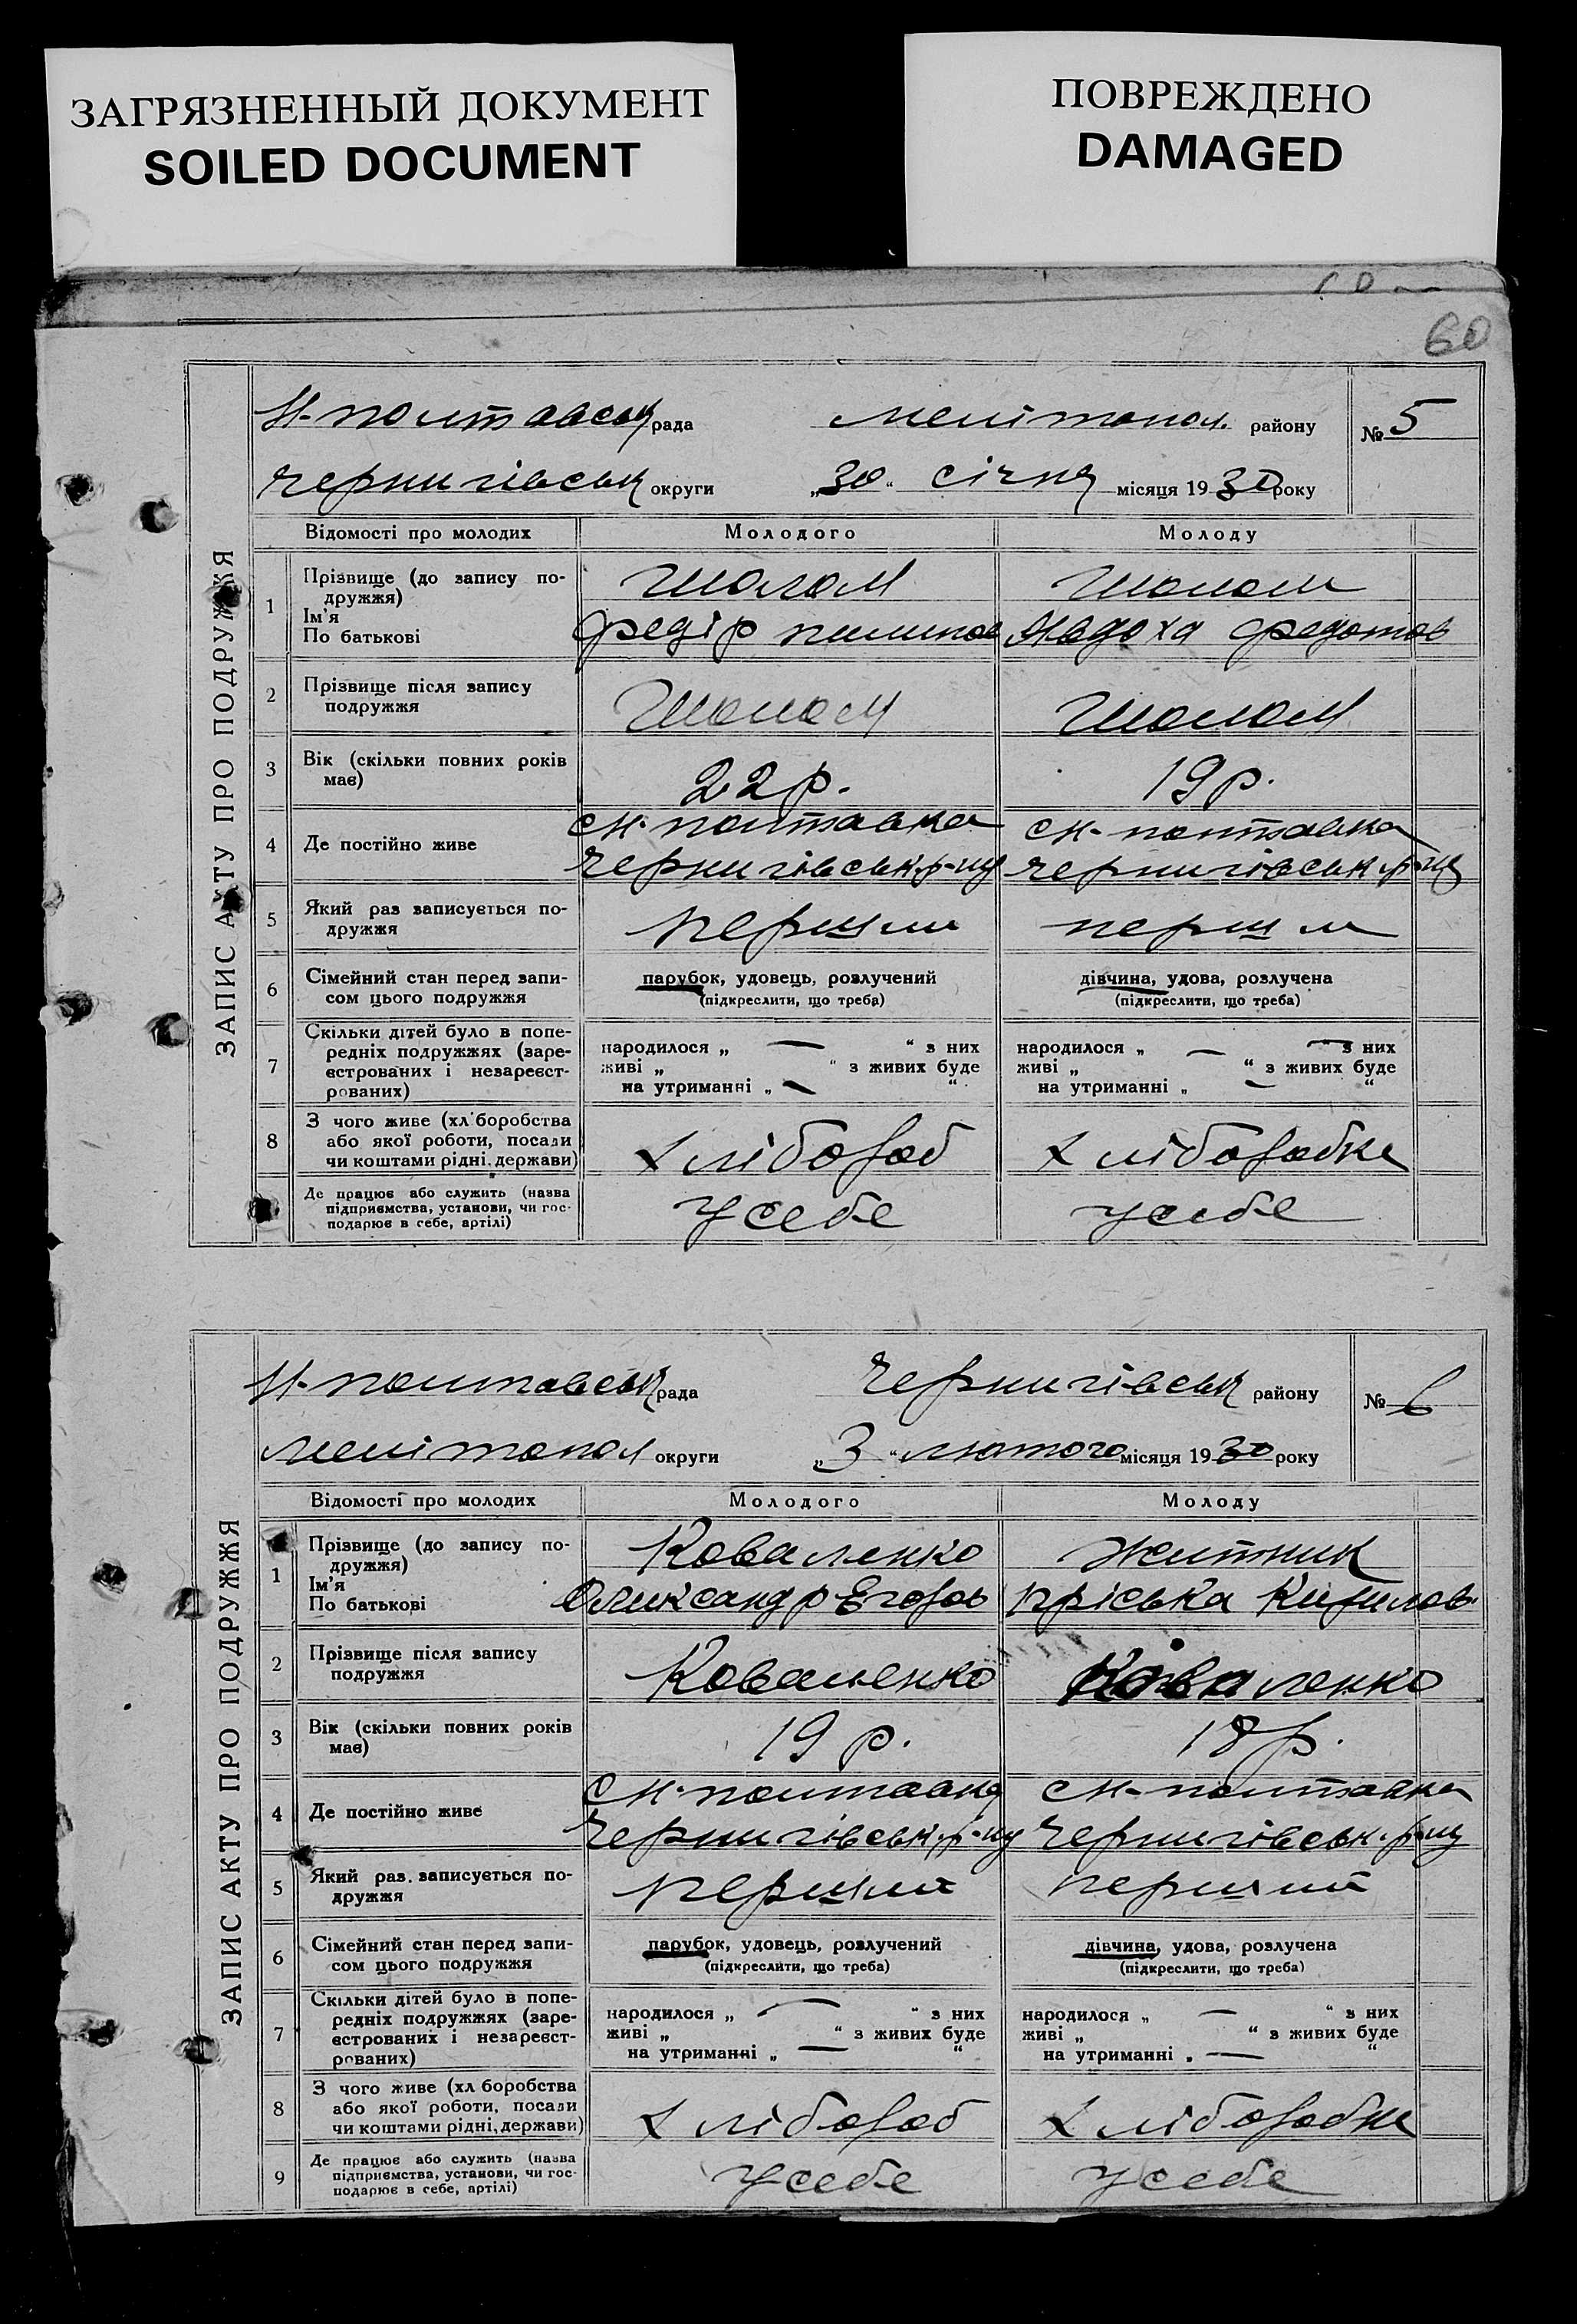 ЗАГРЯЗНЕННЫЙ ДОКУМЕНТ
SOILED DOCUMENT
ПОВРЕЖДЕНО
DAMAGED
60
ЗАПИС АКТУ ПРО ПОДРУЖЖЯ
Н-полтавськ рада мелітопол. району № 5
чернигівськ округи „30“ січня місяця 1930 року
Відомості про молодих Молодого Молоду
1 Прізвище (до запису по- Шолом Шолом
дружжя)
Ім'я Федір пилипов Явдоха федотов
По батькові
2 Прізвище після запису Шолом Шолом
подружжя
3 Вік (скільки повних років 22 р. 19 р.
має)
с Н-полтавка с Н-полтавка
4 Де постійно живе
чернигівськ. р-ну чернигівськ. р-ну
5 Який раз записується по- перши перши
дружжя
6 Сімейний стан перед запи- парубок, удовець, розлучений дівчина, удова, розлучена
сом цього подружжя (підкреслити, що треба) (підкреслити, що треба)
7 Скільки дітей було в попе-
редніх подружжях (заре- народилося „ — “ з них народилося „ — “ з них
єстрованих і незареєст- живі „ “ з живих буде живі „ “ з живих буде
рованих) на утриманні „ — “ на утриманні „ — “
8 З чого живе (хл боробства
або якої роботи, посади хлібороб хліборобка
чи коштами рідні, держави)
Де працює або служить (назва
підприємства, установи, чи гос- у себе у себе
подарює в себе, артілі)
ЗАПИС АКТУ ПРО ПОДРУЖЖЯ
Н-полтавськ рада чернигівськ району № 6
мелітопол округи „3“ лютого місяця 1930 року
Відомості про молодих Молодого Молоду
1 Прізвище (до запису по- Коваленко Житник
дружжя)
Ім'я Олександр Егоров пріська Кирилов.
По батькові
2 Прізвище після запису Коваленко Коваленко
подружжя
3 Вік (скільки повних років 19 р. 18 р.
має)
с Н-полтавка с Н-полтавка
4 Де постійно живе
чернигівськ. р-ну чернигівськ. р-ну
5 Який раз записується по- перший перший
дружжя
6 Сімейний стан перед запи- парубок, удовець, розлучений дівчина, удова, розлучена
сом цього подружжя (підкреслити, що треба) (підкреслити, що треба)
7 Скільки дітей було в попе-
редніх подружжях (заре- народилося „ — “ з них народилося „ — “ з них
єстрованих і незареєст- живі „ “ з живих буде живі „ “ з живих буде
рованих) на утриманні „ — “ на утриманні „ — “
8 З чого живе (хл боробства
або якої роботи, посади хлібороб хліборобка
чи коштами рідні, держави)
9 Де працює або служить (назва
підприємства, установи, чи гос- у себе у себе
подарює в себе, артілі)